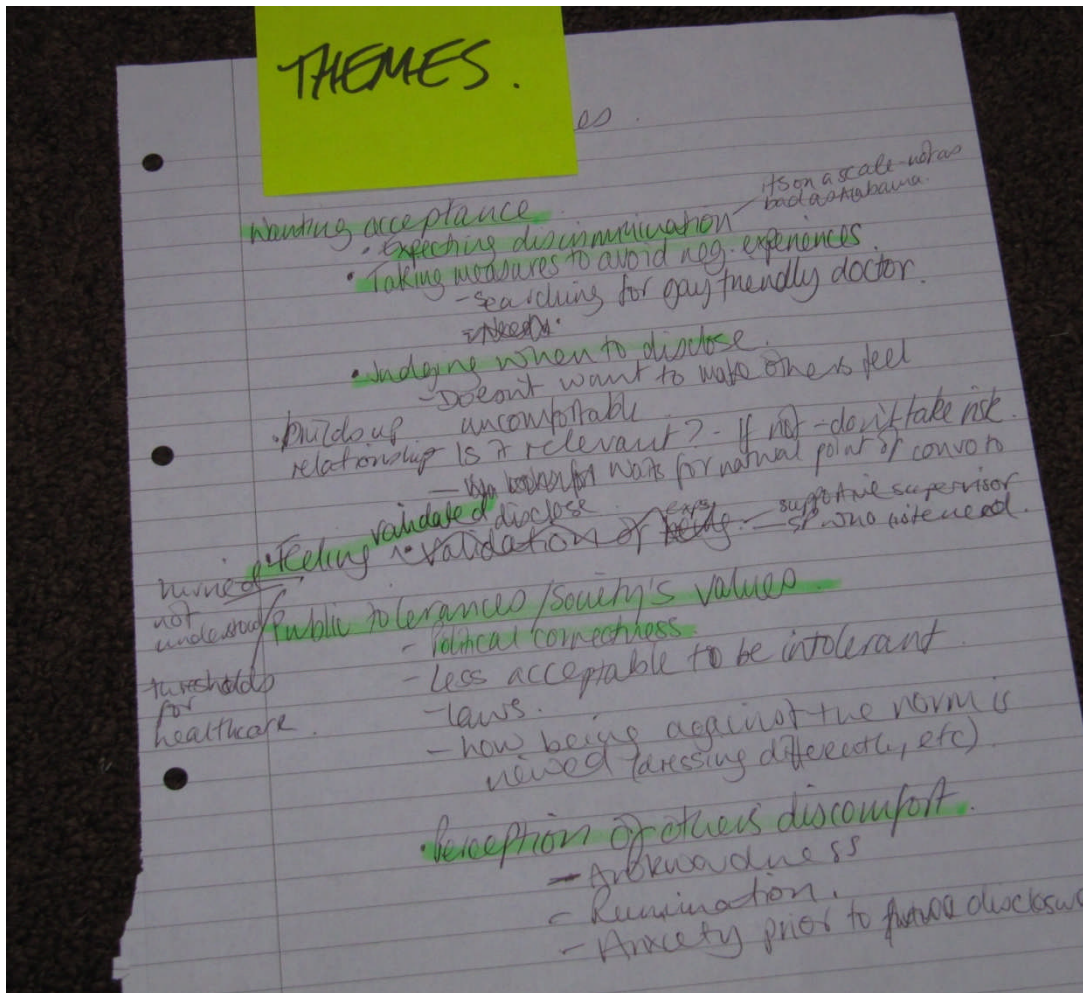 THEMES.
es.
Wanting acceptance
its on a scale - not as
bad as Alabama.
• Expecting discrimmination
• Taking measures to avoid neg. experiences.
- Searching for gay friendly doctor.
• Judging when to disclose.
- Doesn't want to make others feel
uncomfortable
• builds up
relationship Is it relevant? - If not - don't take risk.
- waits for natural point of convo to
disclose
• Feeling validated
• validation of exps
- supportive supervisor
not
understood
Public tolerances/society's values.
- Political correctness
- Less acceptable to be intolerant.
- Laws.
- how being against the norm is
viewed (dressing differently, etc)
thresholds
for
healthcare.
• Perception of others discomfort.
- Awkwardness
- Rumination.
- Anxiety prior to future disclosure